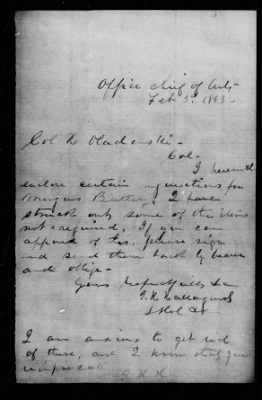 Office Chief of Arty
Feb 5th 1863 -
Col
Col -
I herewith
enclose certain requisitions for
Battery. I have
struck out some of the items
not required. If you can
approve of this, please sign
and send them back by bearer
and oblige -
Yours respectfully &c
I am anxious to get rid
of these, and I know that you
reciprocate